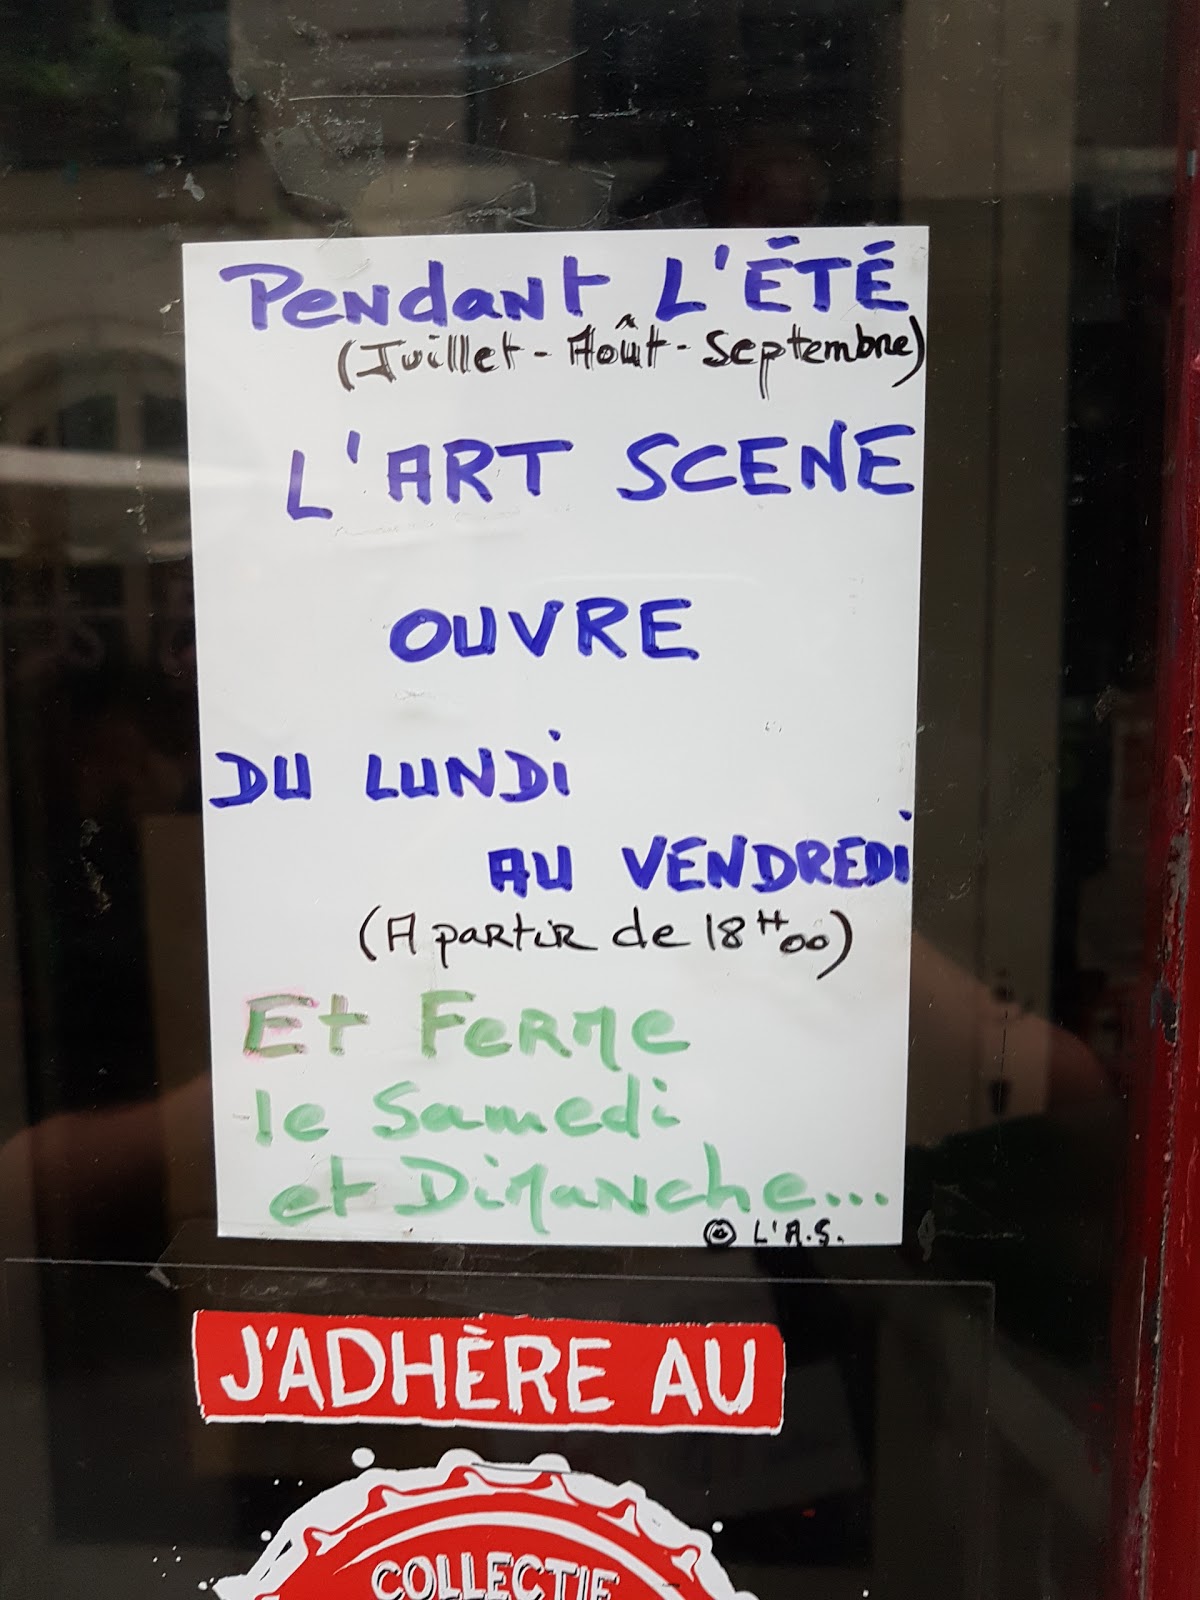 Pendant L'ÉTÉ
(Juillet - Août - Septembre)
L'ART SCENE
OUVRE
DU LUNDI
AU VENDREDI
(A partir de 18H00)
Et Ferme
le Samedi
et Dimanche...
© L'A.S.
J'ADHÈRE AU
COLLECTIF